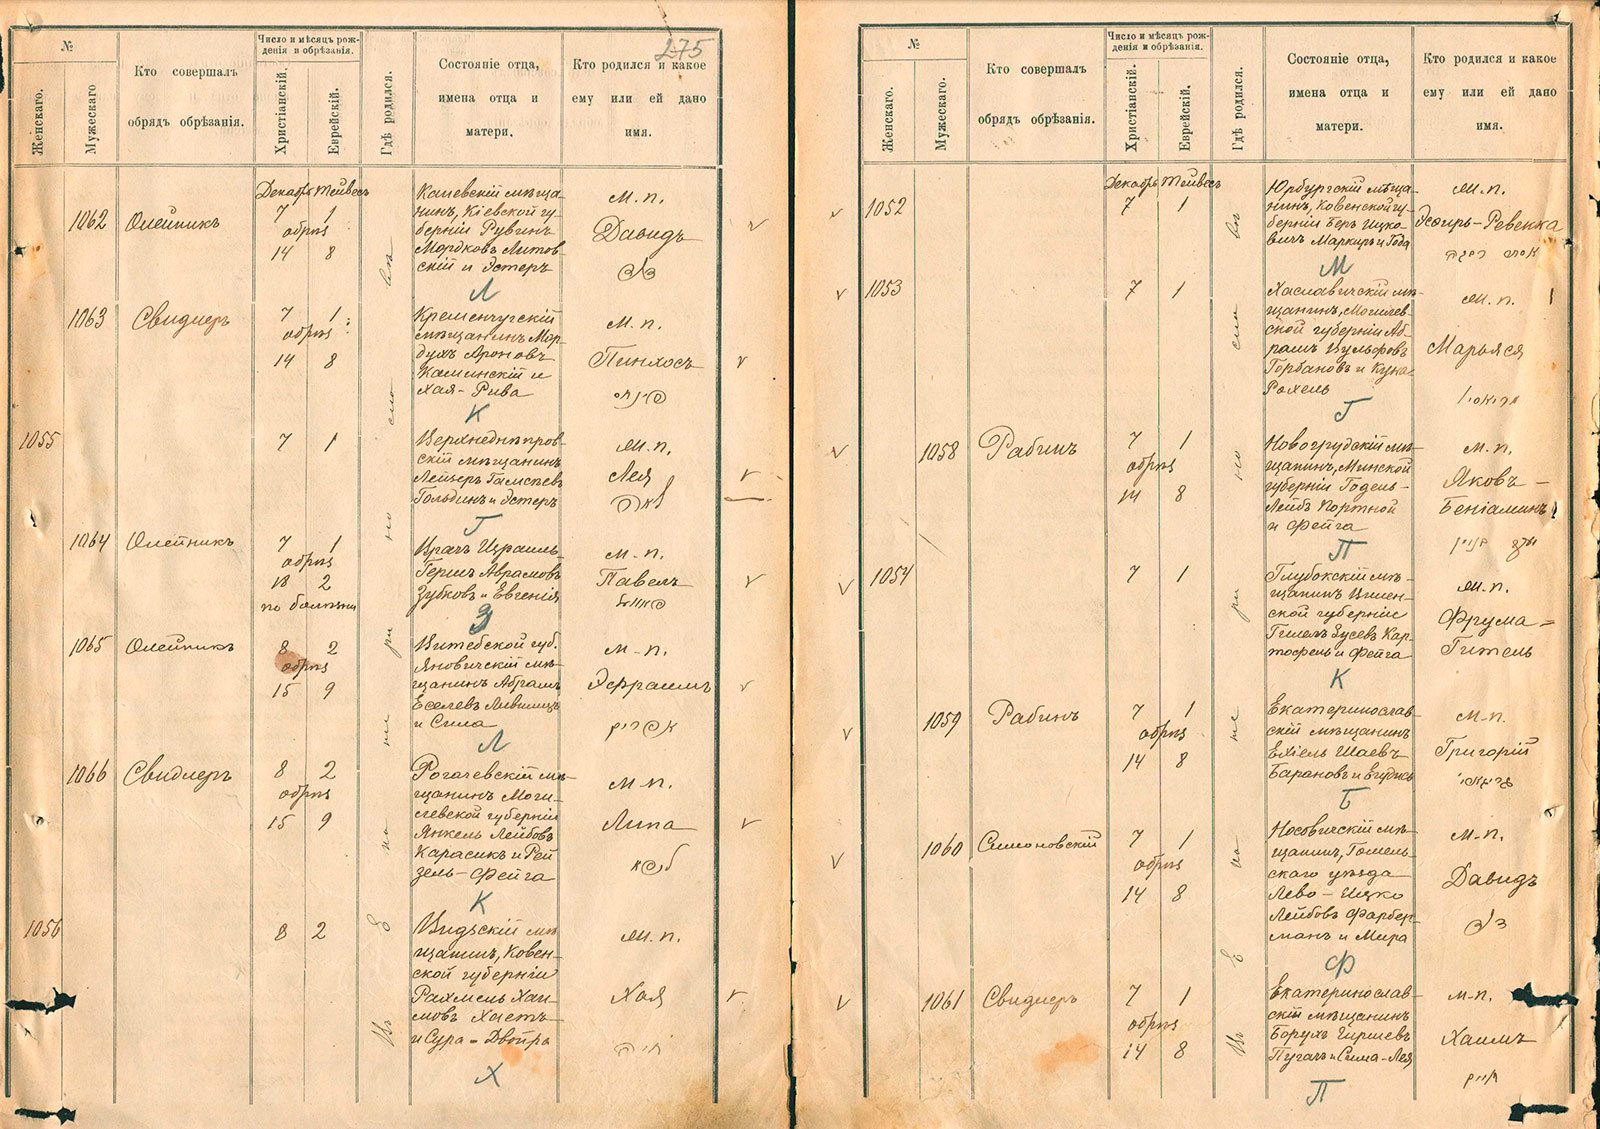 275
№
Женскаго.
Мужескаго
Кто совершалъ
обрядъ обрѣзанія.
Число и мѣсяцъ рож-
денія и обрѣзанія.
Христіанскій.
Еврейскій.
Гдѣ родился.
Состояніе отца,
имена отца и
матери.
Кто родился и какое
ему или ей дано
имя.
Въ Екатеринославѣ
Декабрь Тейвесъ
1062 Олейникъ
7 1
обрѣз
14 8
Каневскій мѣща-
нинъ, Кіевской гу-
берніи Рувинъ
Мордковъ Литов-
скій и Эстеръ
Л
м.п.
Давидъ
דוד
1063 Свидлеръ
7 1
обрѣз
14 8
Кременчугскій
мѣщанинъ Мор-
духъ Ароновъ
Каминскій и
Хая-Рива
К
м.п.
Пинхосъ
פינחס
1055
7 1
Верхнеднѣпров-
скій мѣщанинъ
Лейзеръ
Гольдинъ и Эстеръ
Г
м.п.
Лея
לאה
1064 Олейникъ
7 1
обрѣз
18 2
по болѣзни
Врачъ Израиль-
Гершъ Аврамовъ
Зубковъ и Евгенія
З
м.п.
Павелъ
1065 Олейникъ
8 2
обрѣз
15 9
Витебской губ.
Яновичскій мѣ-
щанинъ Абрамъ
Еселевъ Лившицъ
и Сима
Л
м-п.
Эфраимъ
אפרים
1066 Свидлеръ
8 2
обрѣз
15 9
Рогачевскій мѣ-
щанинъ Моги-
левской губерніи
Янкель Лейбовъ
Карасикъ и Рей
зель-Фейга
К
м.п.
Липа
1056
8 2
Видзскій мѣ
щанинъ, Ковен-
ской губерніи
Рахмель Хаи-
мовъ Хаетъ
и Сура-Двойра
Х
м.п.
Хая
חיה
№
Женскаго.
Мужескаго.
Кто совершалъ
обрядъ обрѣзанія.
Число и мѣсяцъ рож-
денія и обрѣзанія.
Христіанскій.
Еврейскій.
Гдѣ родился.
Состояніе отца,
имена отца и
матери.
Кто родился и какое
ему или ей дано
имя.
Въ Екатеринославѣ
Декабрь Тейвесъ
1052
7 1
Юрбургскій мѣща-
нинъ, Ковенской гу-
берніи Беръ Ицко-
вичъ Маркиръ и Года
М
м.п.
Эсфирь-Ревекка
1053
7 1
Хославичскій мѣ-
щанинъ, Могилев-
ской губерніи Аб-
рамъ
Горбановъ и Куна-
Рохель
Г
м.п.
Марьяся
1058 Рабинъ
7 1
обрѣз
14 8
Новогрудскій мѣ-
щанинъ, Минской
губерніи Годель-
Лейбъ Портной
и Фейга
П
м.п.
Яковъ-
Беніаминъ
1054
7 1
Глубокскій мѣ-
щанинъ Вилен-
ской губерніи
Гилель Зусевъ Кар-
тофель и Фейга
К
м.п.
Фрума=
Гитель
1059 Рабинъ
7 1
обрѣз
14 8
Екатеринослав-
скій мѣщанинъ
Ехіель Шаевъ
Барановъ и Егудисъ
Б
м-п.
Григорій
1060 Симоновскій
7 1
обрѣз
14 8
Носовичскій мѣ-
щанинъ, Гомель-
скаго уѣзда
Лево-Ицко
Лейбовъ Фарбер-
манъ и Мира
Ф
м-п.
Давидъ
דוד
1061 Свидлеръ
7 1
обрѣз
14 8
Екатеринослав-
скій мѣщанинъ
Борухъ Гиршевъ
Пугачъ и Сима-Лея
П
м-п.
Хаимъ
חיים